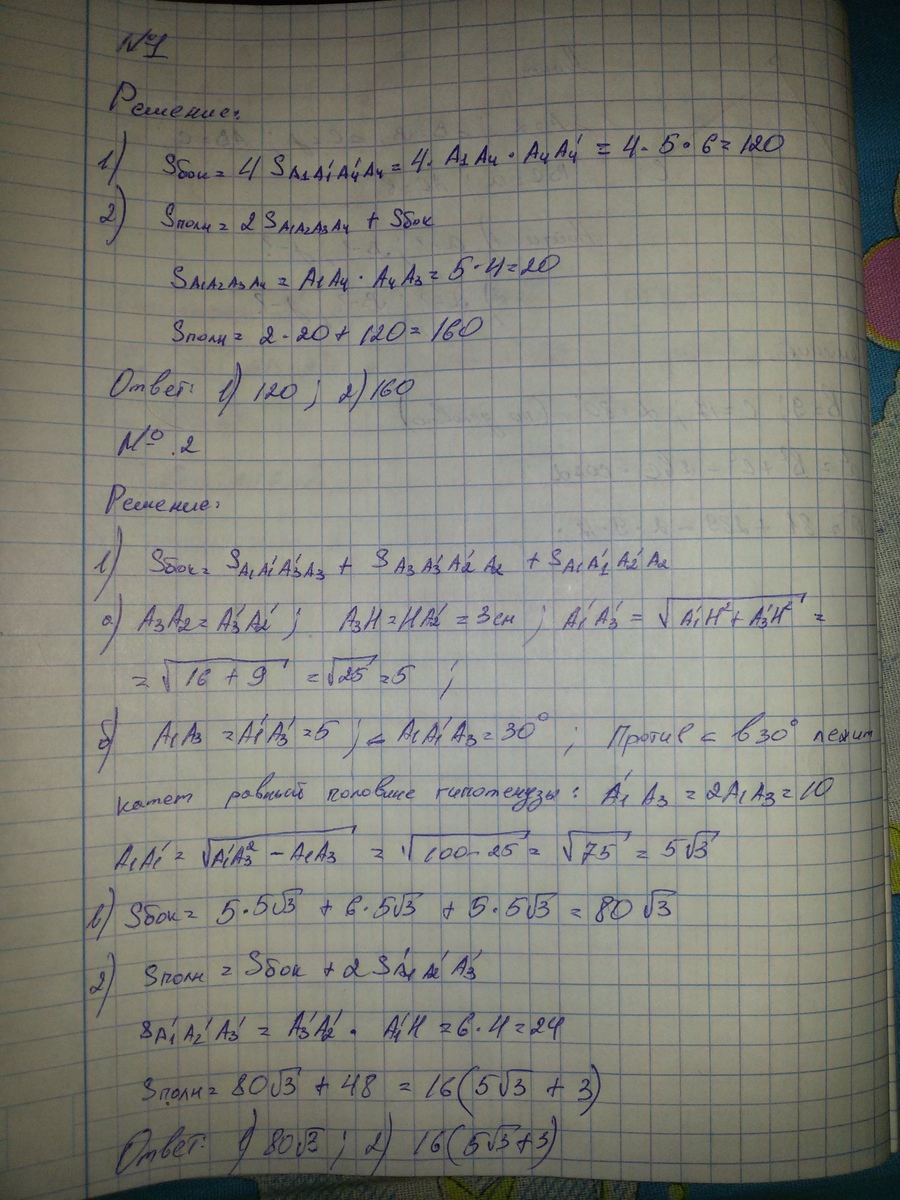 №1
Решение:
1) Sбок = 4 S A₁A₁'A₄'A₄ = 4 · A₁A₄ · A₄A₄' = 4 · 5 · 6 = 120
2) Sполн = 2 S A₁A₂A₃A₄ + Sбок
S A₁A₂A₃A₄ = A₁A₄ · A₄A₃ = 5 · 4 = 20
Sполн = 2 · 20 + 120 = 160
Ответ: 1) 120 ; 2) 160
№ .2
Решение:
1) Sбок = S A₁A₁'A₃'A₃ + S A₃A₃'A₂'A₂ + S A₁A₁'A₂'A₂
а) A₃A₂ = A₃'A₂' ; A₃H = HA₂' = 3см ; A₁'A₃' = √(A₁'H² + A₃'H²) =
= √(16 + 9) = √25 = 5 ;
б) A₁A₃ = A₁'A₃' = 5 ; ∠ A₁A₁'A₃ = 30° ; Против ∠ в 30° лежит
катет равный половине гипотенузы: A₁'A₃ = 2A₁A₃ = 10
A₁A₁' = √(A₁'A₃² - A₁A₃) = √(100 - 25) = √75 = 5√3
в) Sбок = 5 · 5√3 + 6 · 5√3 + 5 · 5√3 = 80√3
2) Sполн = Sбок + 2 S A₁'A₂'A₃'
S A₁'A₂'A₃' = A₃'A₂' · A₁'H = 6 · 4 = 24
Sполн = 80√3 + 48 = 16(5√3 + 3)
Ответ: 1) 80√3 ; 2) 16(5√3+3)